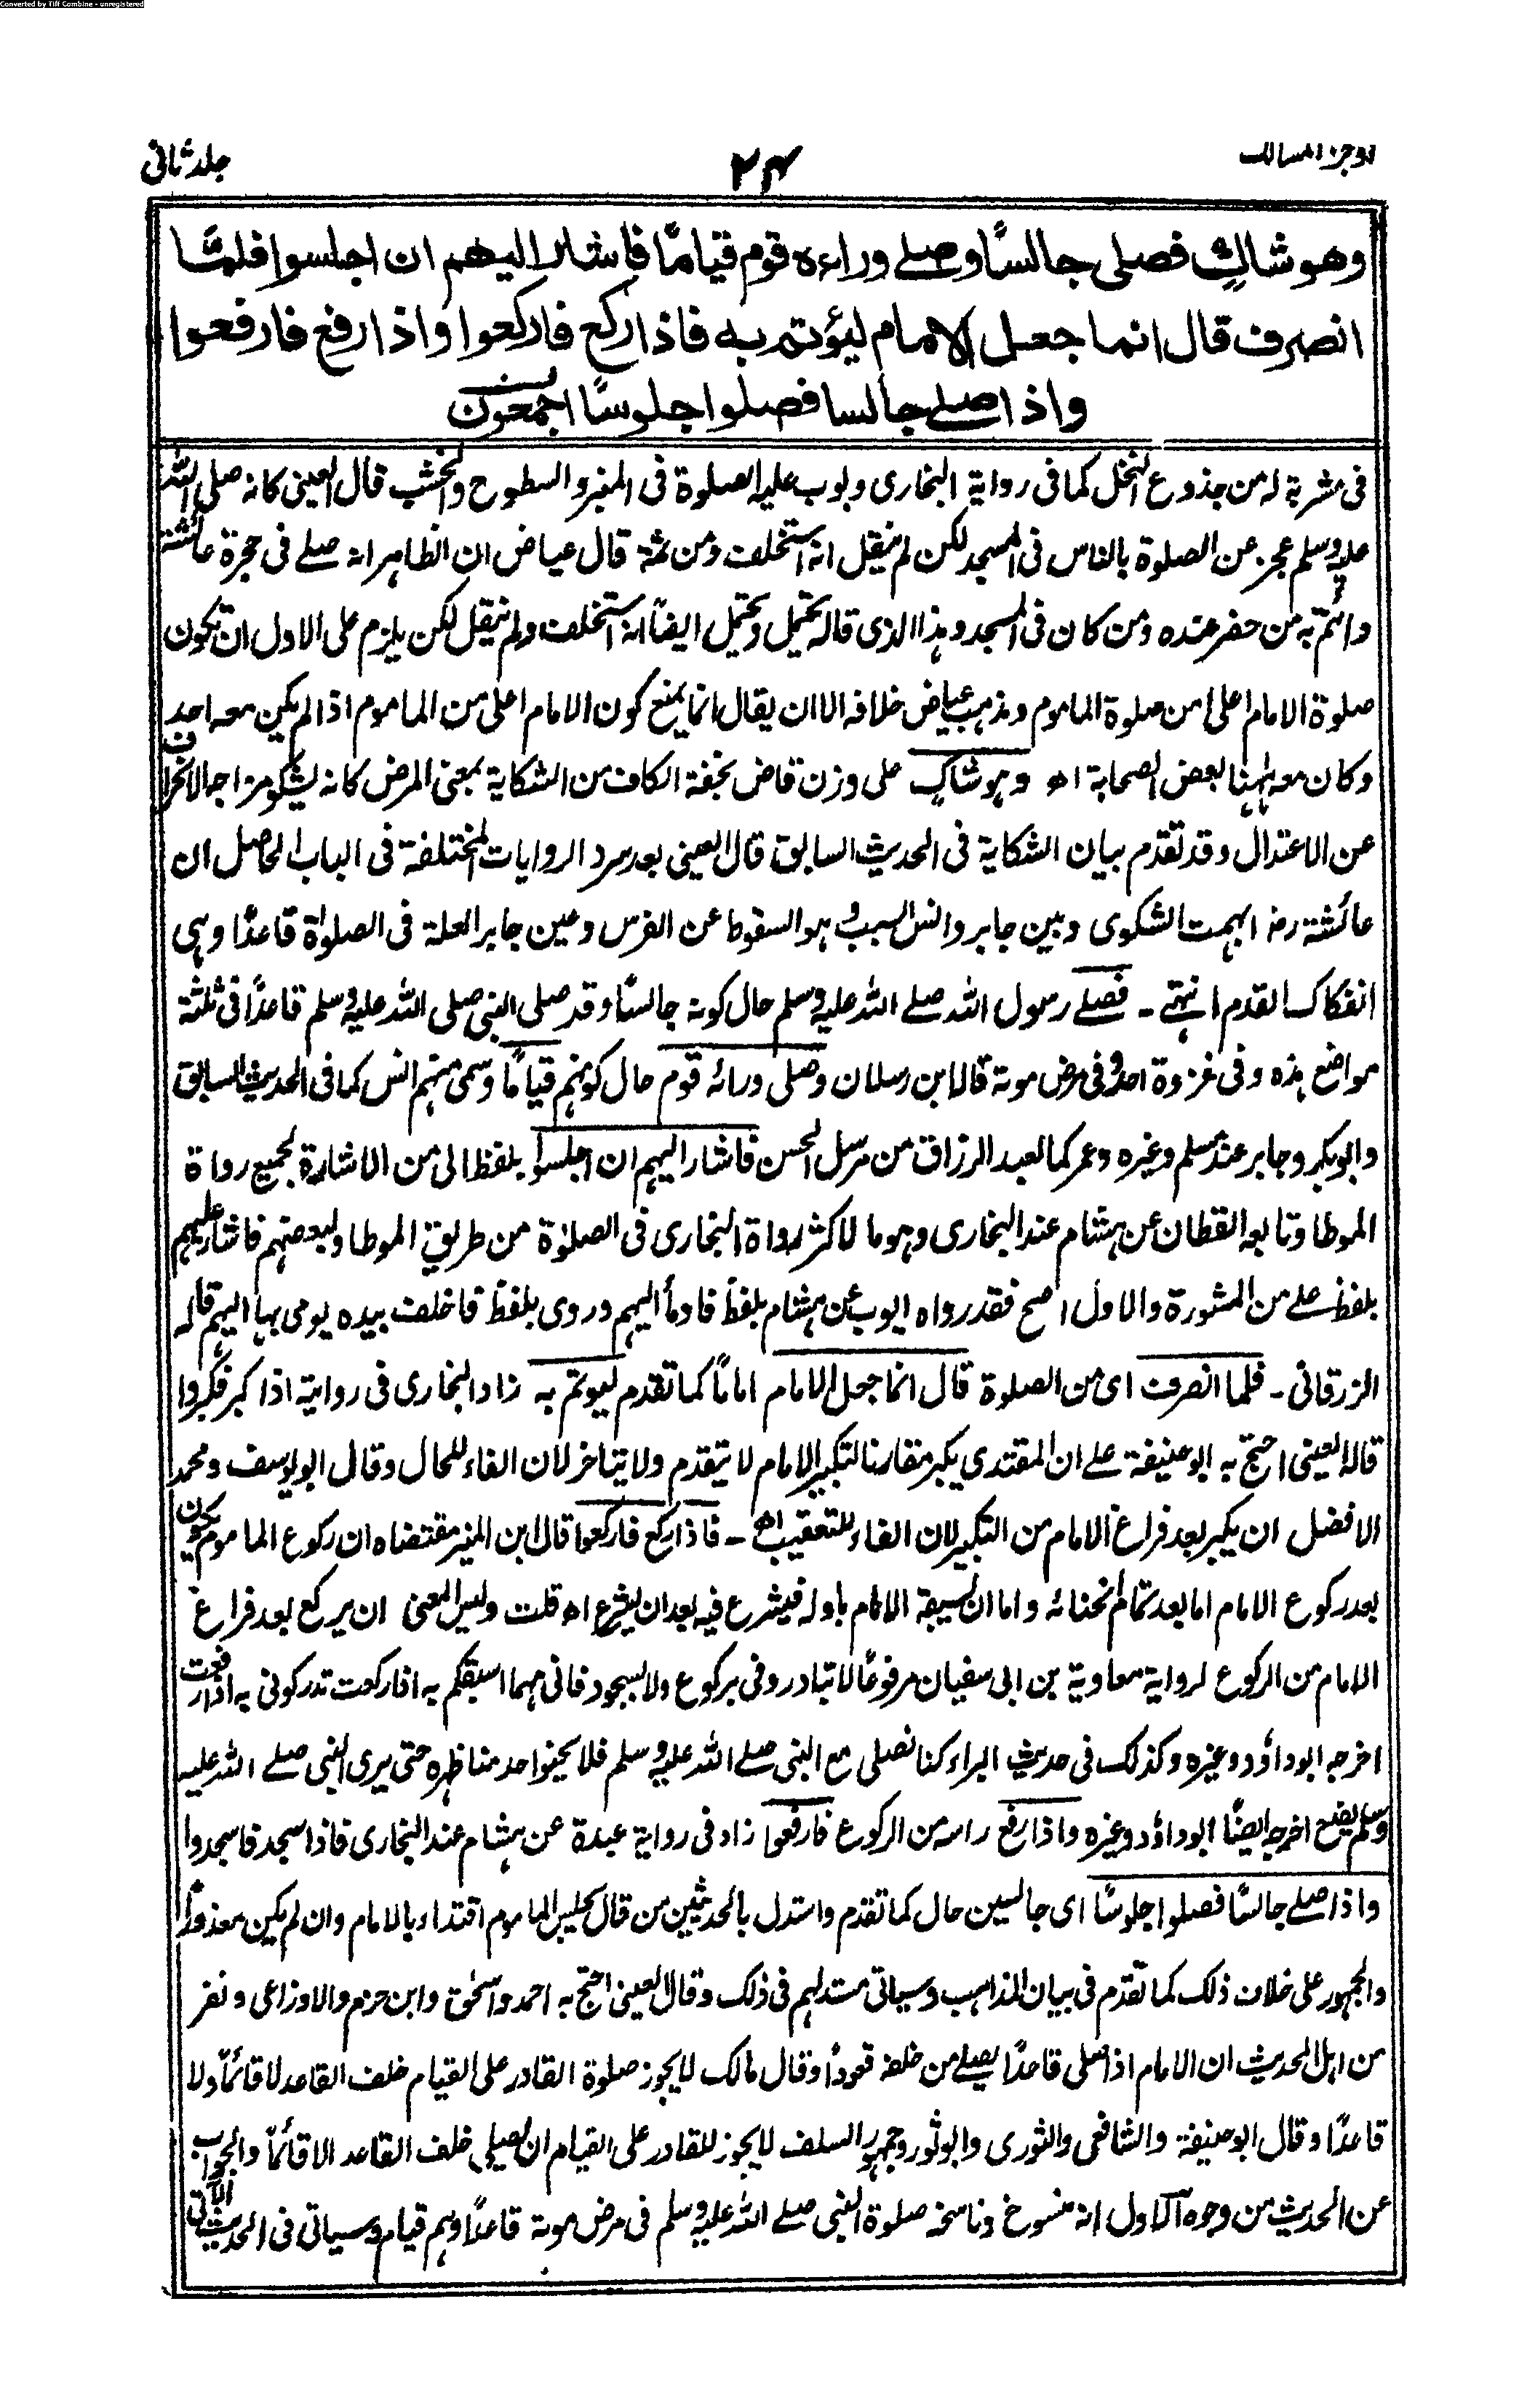 Converted by Tiff Combine - unregistered
اوجز المسالك
۲۴
جلد ثانى
وهو شاكٍ فصلى جالسًا وصلے وراءه قوم قيامًا فاشار اليهم ان اجلسوا فلمّا
انصرف قال انما جعل الامام ليؤتم به فاذا ركع فاركعوا واذا رفع فارفعوا
واذا صلے جالسا فصلوا جلوسًا اجمعون
فى مشربة له من جذوع النخل كما فى رواية البخارى وبوب عليه الصلوة فى المنبر والسطوح والخشب قال العينى كانه صلى الله
عليه وسلم عجز عن الصلوة بالناس فى المسجد لكن لم ينقل انه استخلف ومن ثمة قال عياض ان الظاهر انه صلے فى حجرة عائشة
وائتم به من حضر عنده ومن كان فى المسجد وهذا الذى قاله يحتمل ويحتمل ايضًا انه استخلف ولم ينقل لكن يلزم على الاول ان تكون
صلوة الامام اعلى من صلوة الماموم ومذهب عياض خلافه الا ان يقال انما يمنع كون الامام اعلى من الماموم اذا لم يكن معه احد
وكان معه ههنا بعض الصحابة اھ وهو شاكٍ على وزن قاض بخفة الكاف من الشكاية بمعنى المرض كانه يشكو مزاجه الانحراف
عن الاعتدال وقد تقدم بيان الشكاية فى الحديث السابق قال العينى بعد سرد الروايات المختلفة فى الباب الحاصل ان
عائشة رض ابهمت الشكوى وبين جابر وانس السبب وهو السقوط عن الفرس وعين جابر العلة فى الصلوٰة قاعدًا وهى
انفكاك القدم انتهے - فصلے رسول الله صلے الله عليه وسلم حال كونه جالسًا وقد صلى النبى صلى الله عليه وسلم قاعدًا فى ثلثة
مواضع هذه وفى غزوة احد وفى مرض موته قاله ابن رسلان وصلى ورائه قوم حال كونهم قيامًا وسمى منهم انس كما فى الحديث السابق
وابوبكر وجابر عند مسلم وغيره وعمر كما لعبد الرزاق من مرسل الحسن فاشار اليهم ان اجلسوا بلفظ الى من الاشارة لجميع رواة
الموطا وتابعه القطان عن هشام عند البخارى وهو ما لاكثر رواة البخارى فى الصلوٰة من طريق الموطا ولبعضهم فاشار عليهم
بلفظ علے من المشورة والاول اصح فقد رواه ايوب عن هشام بلفظ فاومأ اليهم وروى بلفظ فاخلف بيده يومى بها اليهم قاله
الزرقانى - فلما انصرف اى من الصلوة قال انما جعل الامام امامًا كما تقدم ليوتم به زاد البخارى فى رواية اذا كبر فكبروا
قاله العينى احتج به ابو حنيفة علے ان المقتدى يكبر مقارنا لتكبير الامام لا يتقدم ولا يتاخر لان الفاء للحال وقال ابو يوسف ومحمد
الافضل ان يكبر بعد فراغ الامام من التكبير لان الفاء للتعقيب اھ - فاذا ركع فاركعوا قال ابن المنير مقتضاه ان ركوع الماموم يكون
بعد ركوع الامام اما بعد تمام انحنائه واما ان يسبقه الامام باوله فيشرع فيه بعد ان يشرع اھ قلت وليس المعنى ان يركع بعد فراغ
الامام من الركوع لرواية معاوية بن ابى سفيان مرفوعًا لا تبادرونى بركوع ولا بسجود فانى مهما اسبقكم به اذا ركعت تدركونى به اذا رفعت
اخرجه ابو داؤد وغيره وكذلك فى حديث البراء كنا نصلى مع النبى صلے الله عليه وسلم فلا يحنو احد منا ظهره حتى يرى النبى صلے الله عليه
وسلم يضع اخرجه ايضًا ابو داؤد وغيره واذا رفع راسه من الركوع فارفعوا زاد فى رواية عبدة عن هشام عند البخارى فاذا سجد فاسجدوا
واذا صلے جالسًا فصلوا جلوسًا اى جالسين حال كما تقدم واستدل بالحديثين من قال يجلس الماموم اقتداء بالامام وان لم يكن معذورًا
والجمهور على خلاف ذلك كما تقدم فى بيان المذاهب وسياتى مستدلهم فى ذلك وقال العينى احتج به احمد واسحٰق وابن حزم والاوزاعى ونفر
من اهل الحديث ان الامام اذا صلى قاعدًا يصلے من خلفه قعودًا وقال مالك لا يجوز صلوة القادر على القيام خلف القاعد لا قائمًا ولا
قاعدًا وقال ابو حنيفة والشافعى والثورى وابو ثور وجمهور السلف لا يجوز للقادر على القيام ان يصلى خلف القاعد الا قائمًا والجواب
عن الحديث من وجوه الاول انه منسوخ وناسخه صلوة النبى صلے الله عليه وسلم فى مرض موته قاعدًا وهم قيام وسياتى فى الحديث الآتى